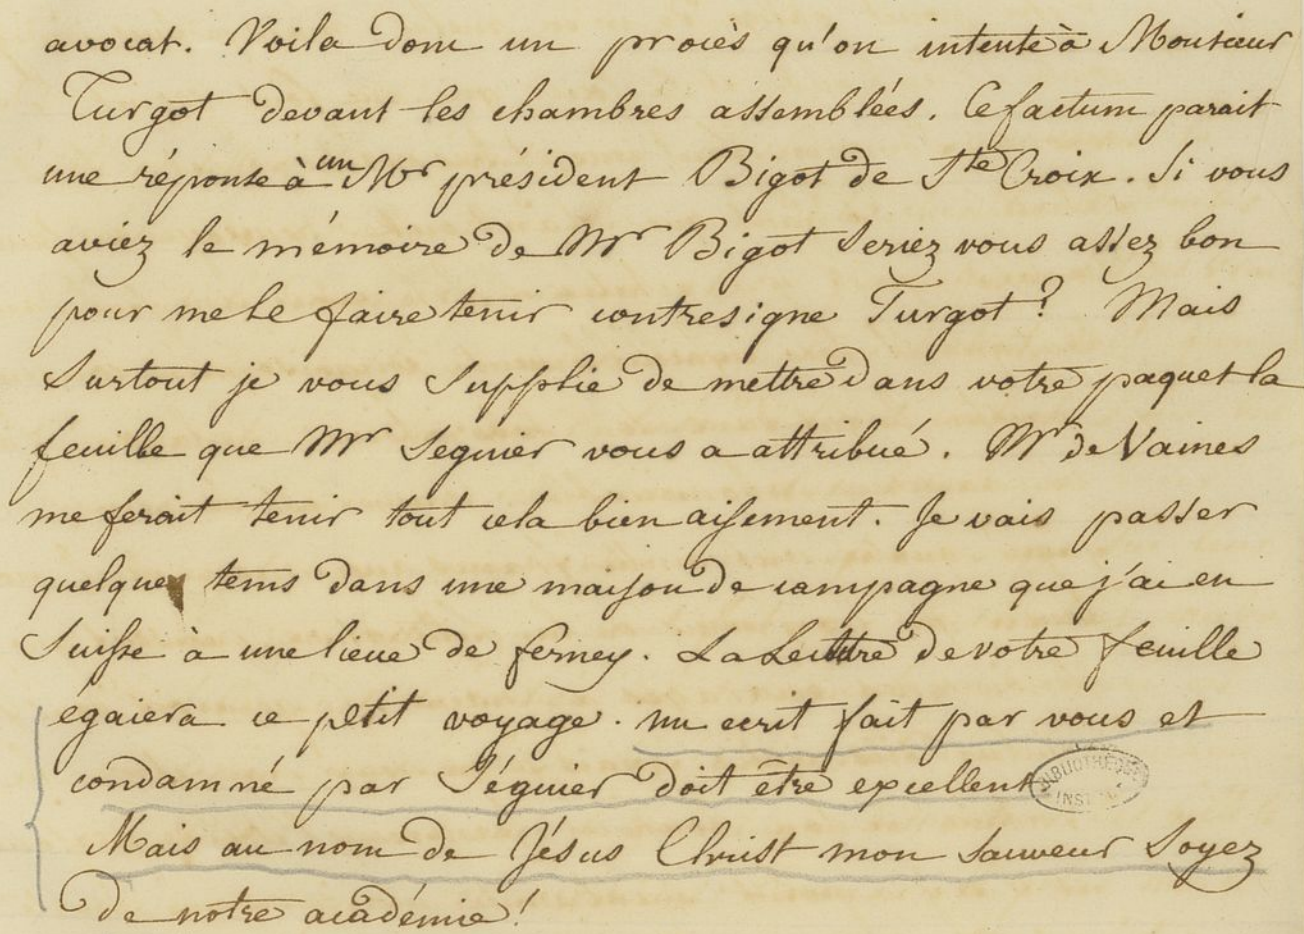 avocat. Voila donc un procès qu'on intente à Monsieur
Turgot devant les chambres assemblées. Ce factum parait
une réponse à un Mr président Bigot de Ste Croix. Si vous
aviez le mémoire de Mr Bigot seriez vous assez bon
pour me le faire tenir contresigne Turgot? Mais
surtout je vous supplie de mettre dans votre paquet la
feuille que Mr Seguier vous a attribué. Mr de Vaines
me ferait tenir tout cela bien aisement. Je vais passer
quelques tems dans une maison de campagne que j'ai en
Suisse à une lieue de ferney. La Lecture de votre feuille
égaiera ce petit voyage. un ecrit fait par vous et
condamné par Séguier doit être excellent
BIBLIOTHÈQUE
INSTITUT
Mais au nom de Jésus Christ mon sauveur soyez
de notre académie!